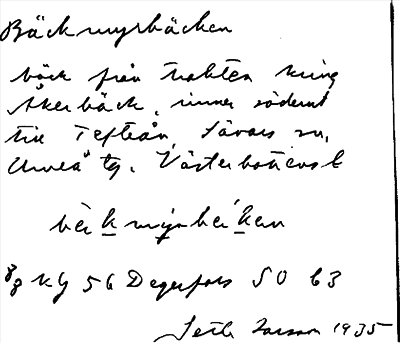 Bäckmyrbäcken
bäck från trakten kring
Åkerbäck, rinner söderut
till Tefteån, Sävars sn,
Umeå tg. Västerbottens l.
bèkmyrbèken
KG 56 Degerfors SO 63
Seth Larsson 1935